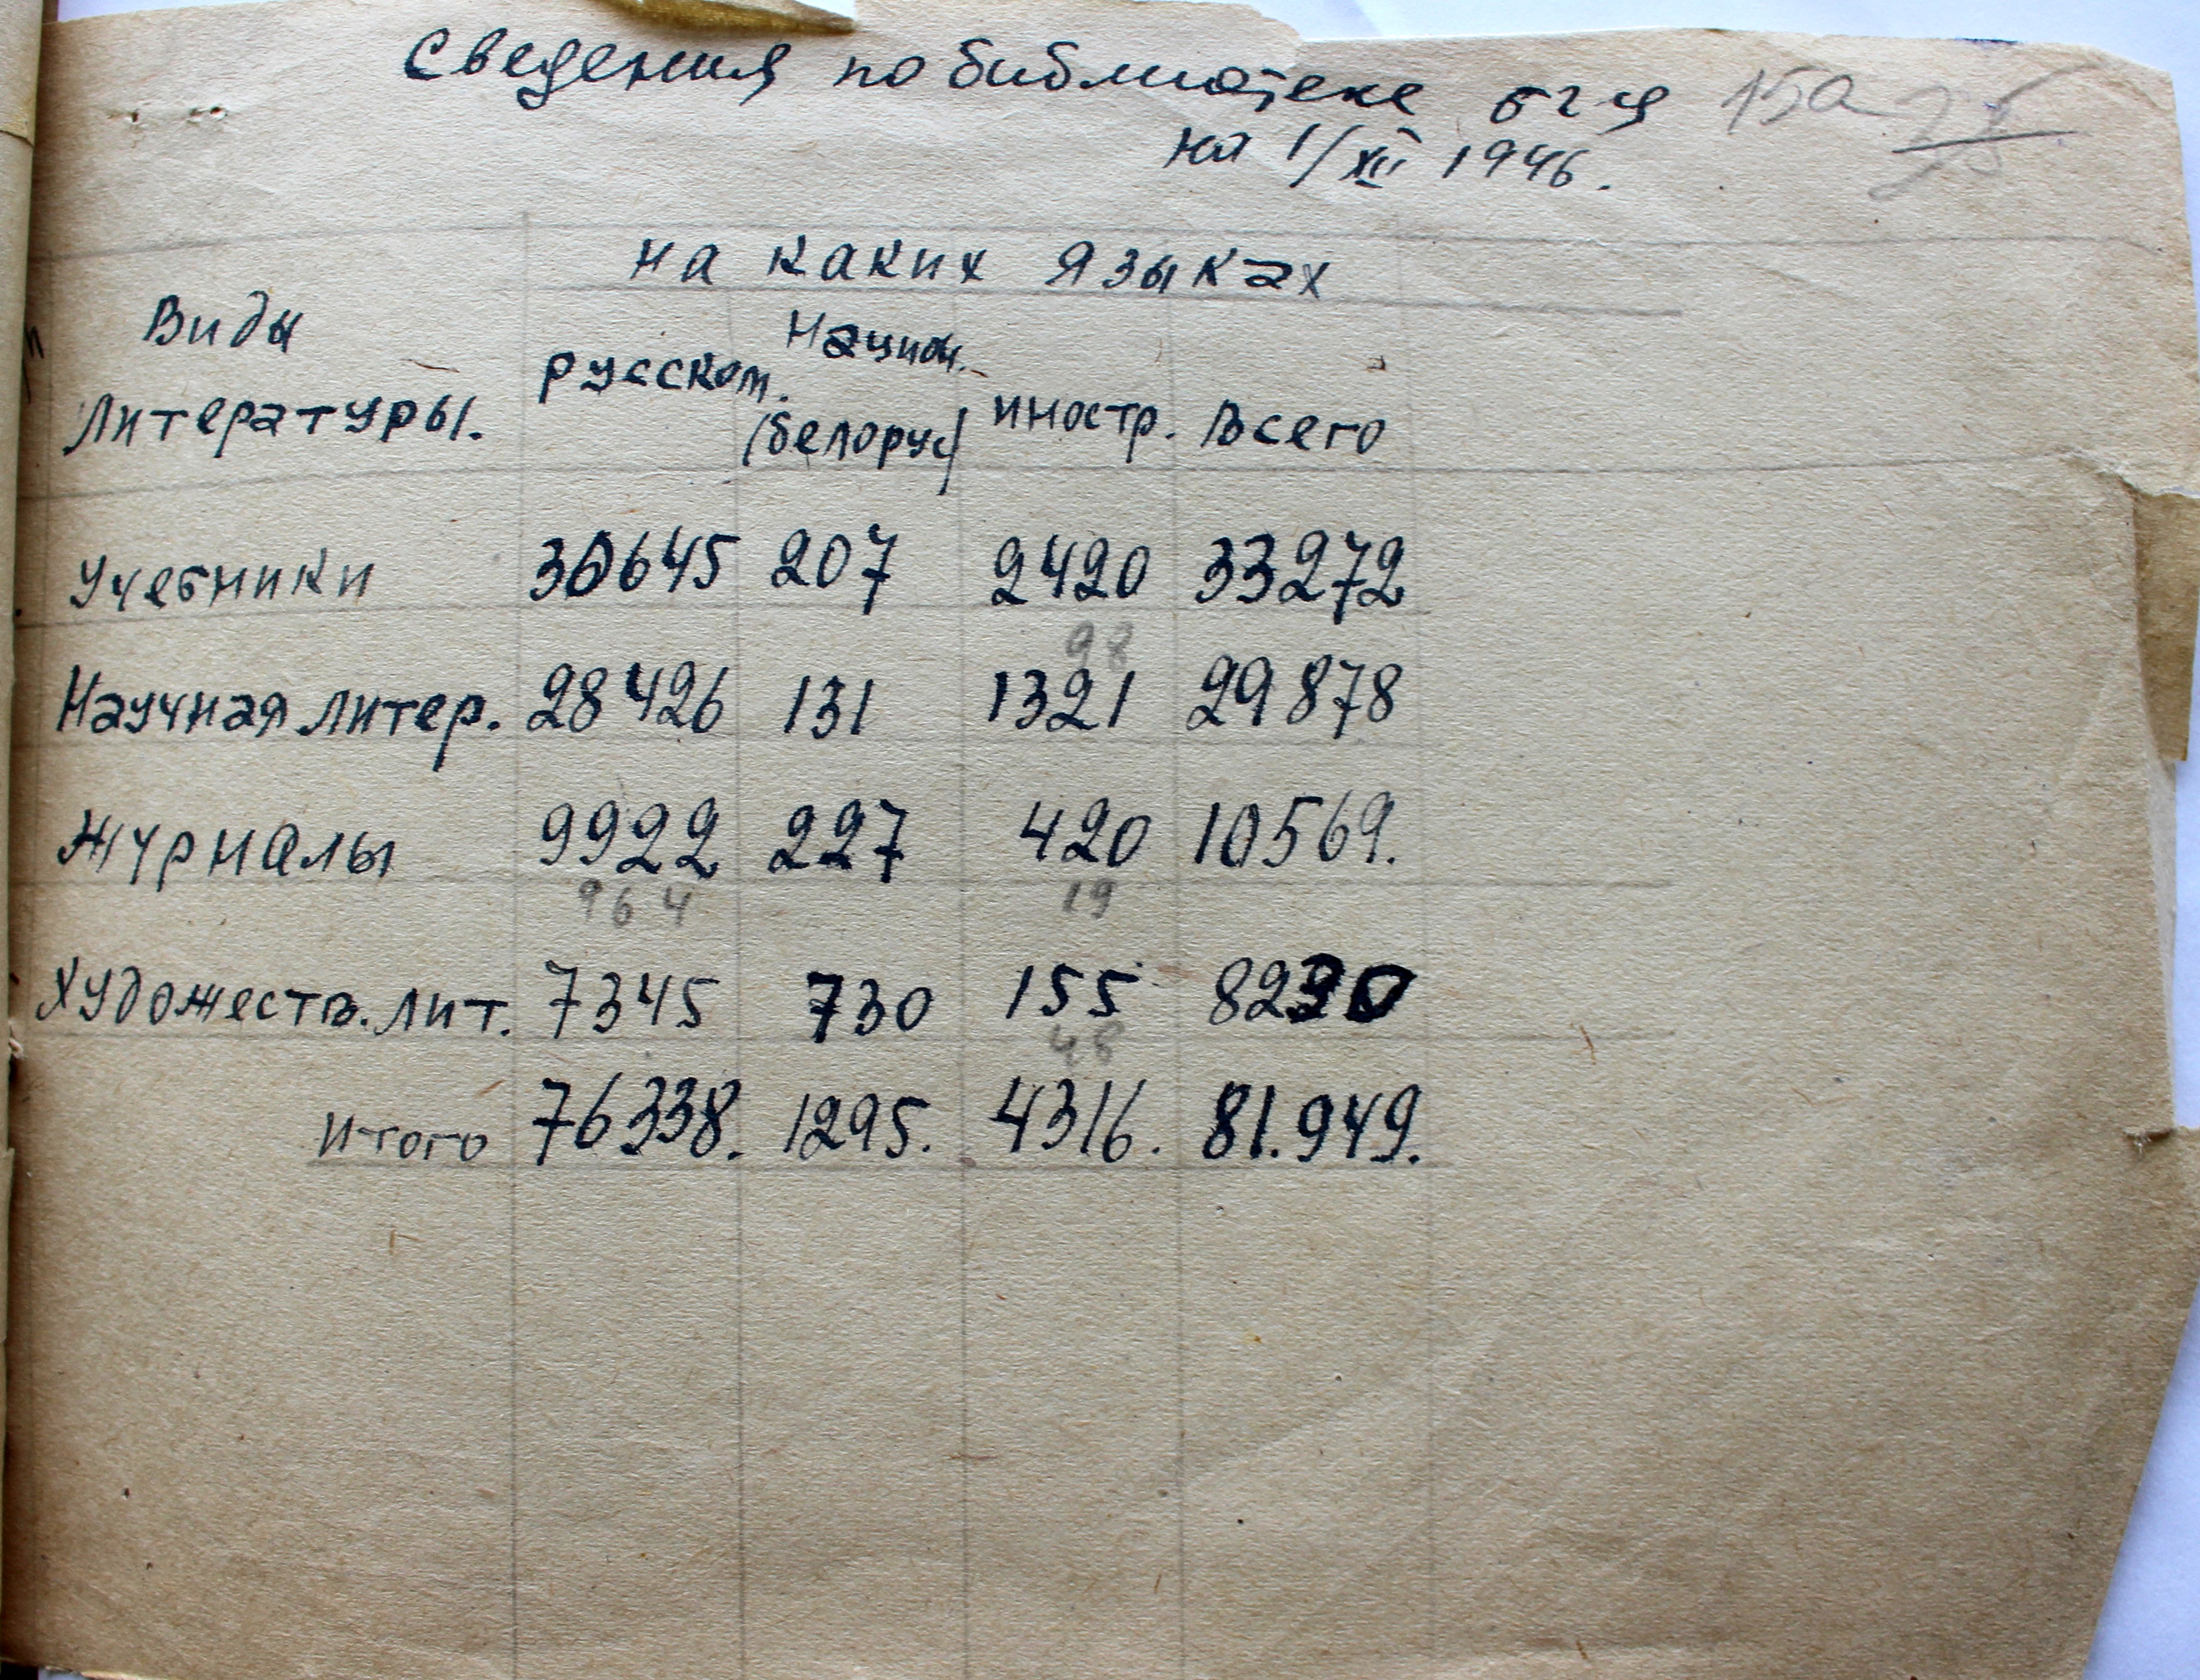 Сведения по библиотеке БГУ 15а
на 1/XII 1946.
на каких языках
Виды
Литературы.
русском.
Национ.
(белорус)
иностр.
Всего
Учебники 30645 207 2420 33272
98
Научная литер. 28426 131 1321 29878
Журналы 9922 227 420 10569.
964 19
Художеств. лит. 7345 730 155 8230
48
Итого 76338. 1295. 4316. 81.949.